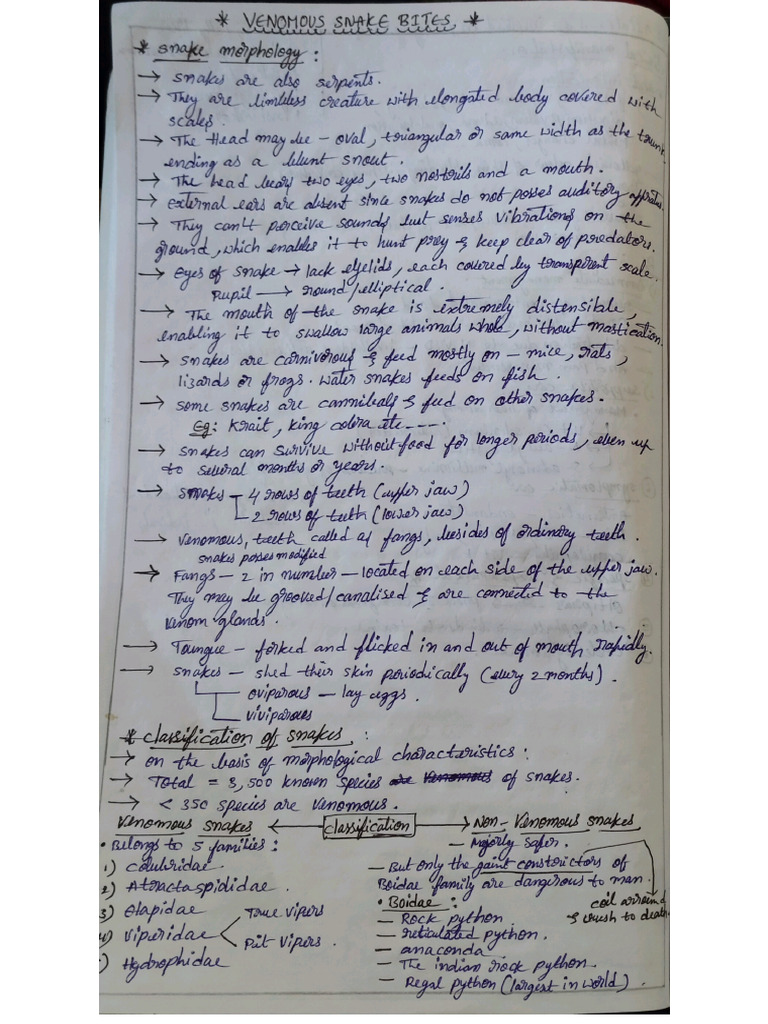 * VENOMOUS SNAKE BITES *
* snake morphology :
→ snakes are also serpents.
→ They are limbless creature with elongated body covered with
scales.
→ The Head may be - oval, triangular or same width as the trunk
ending as a blunt snout.
→ The head bears two eyes, two nostrils and a mouth.
→ external ears are absent since snakes do not posses auditory appratus.
→ They can't perceive sounds but senses vibrations on the
ground, which enables it to hunt prey & keep clear of predators.
→ eyes of snake → lack eyelids, each covered by transparent scale.
Pupil → round/elliptical.
→ The mouth of the snake is extremely distensible,
enabling it to swallow large animals whole, without mastication.
→ snakes are carnivorous & feed mostly on - mice, rats,
lizards or frogs. water snakes feeds on fish.
→ some snakes are cannibals & feed on other snakes.
Eg: Krait, king cobra etc ----.
→ snakes can survive without food for longer periods, even up
to several months or years.
→ snakes - 4 rows of teeth (upper jaw)
2 rows of teeth (lower jaw)
→ venomous, teeth called as fangs, besides of ordinary teeth.
snakes posses modified
→ Fangs - 2 in number - located on each side of the upper jaw.
They may be grooved/canalised & are connected to the
venom glands.
→ Toungue - forked and flicked in and out of mouth rapidly.
→ snakes - shed their skin periodically (every 2 months).
oviparous - lay eggs.
viviparous
* classification of snakes :
→ on the basis of morphological characteristics :
→ Total = 3,500 known species are venomous of snakes.
→ < 350 species are venomous.
venomous snakes ← classification → Non-venomous snakes
• Belongs to 5 families :
1) colubridae
2) Atractaspididae.
3) Elapidae
4) viperidae < True vipers
Pit vipers.
) Hydrophidae
- Majorly safer.
- But only the gaint constrictors of
Boidae family are dangerous to man.
coil arround
& crush to death
• Boidae :
- Rock python
- reticulated python.
- anaconda
- The indian rock python.
- Regal python (largest in world).